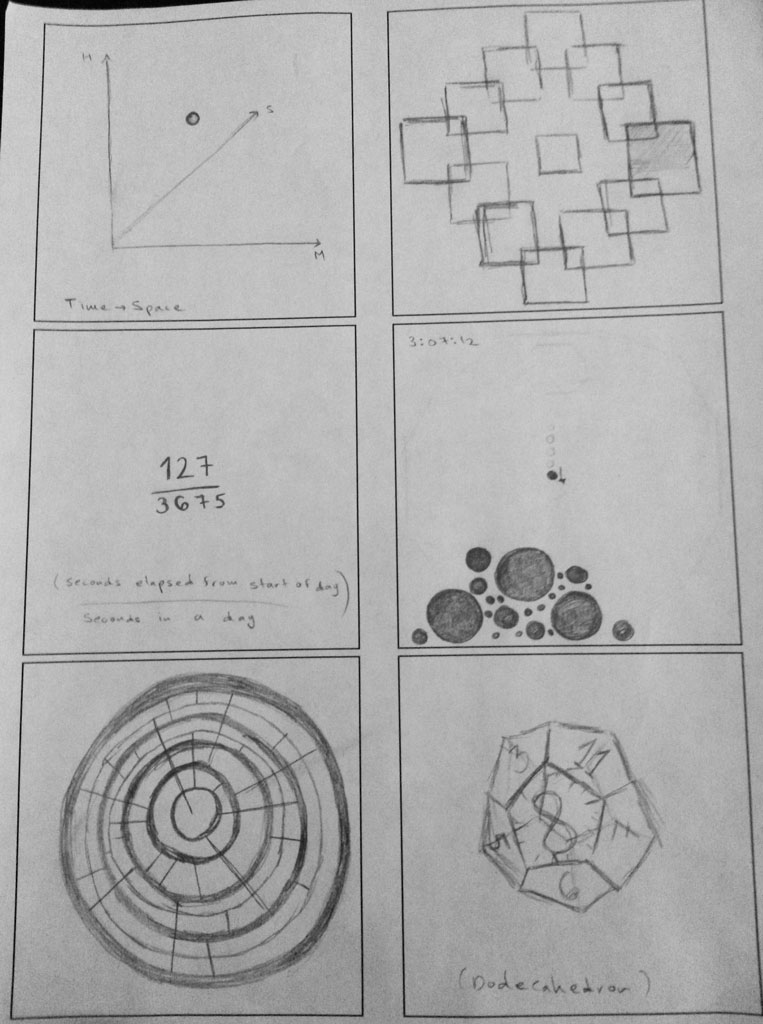 H
S
M
Time → Space
127
3675
(seconds elapsed from start of day)
Seconds in a day
3:07:12
3
11
8
5
6
(Dodecahedron)